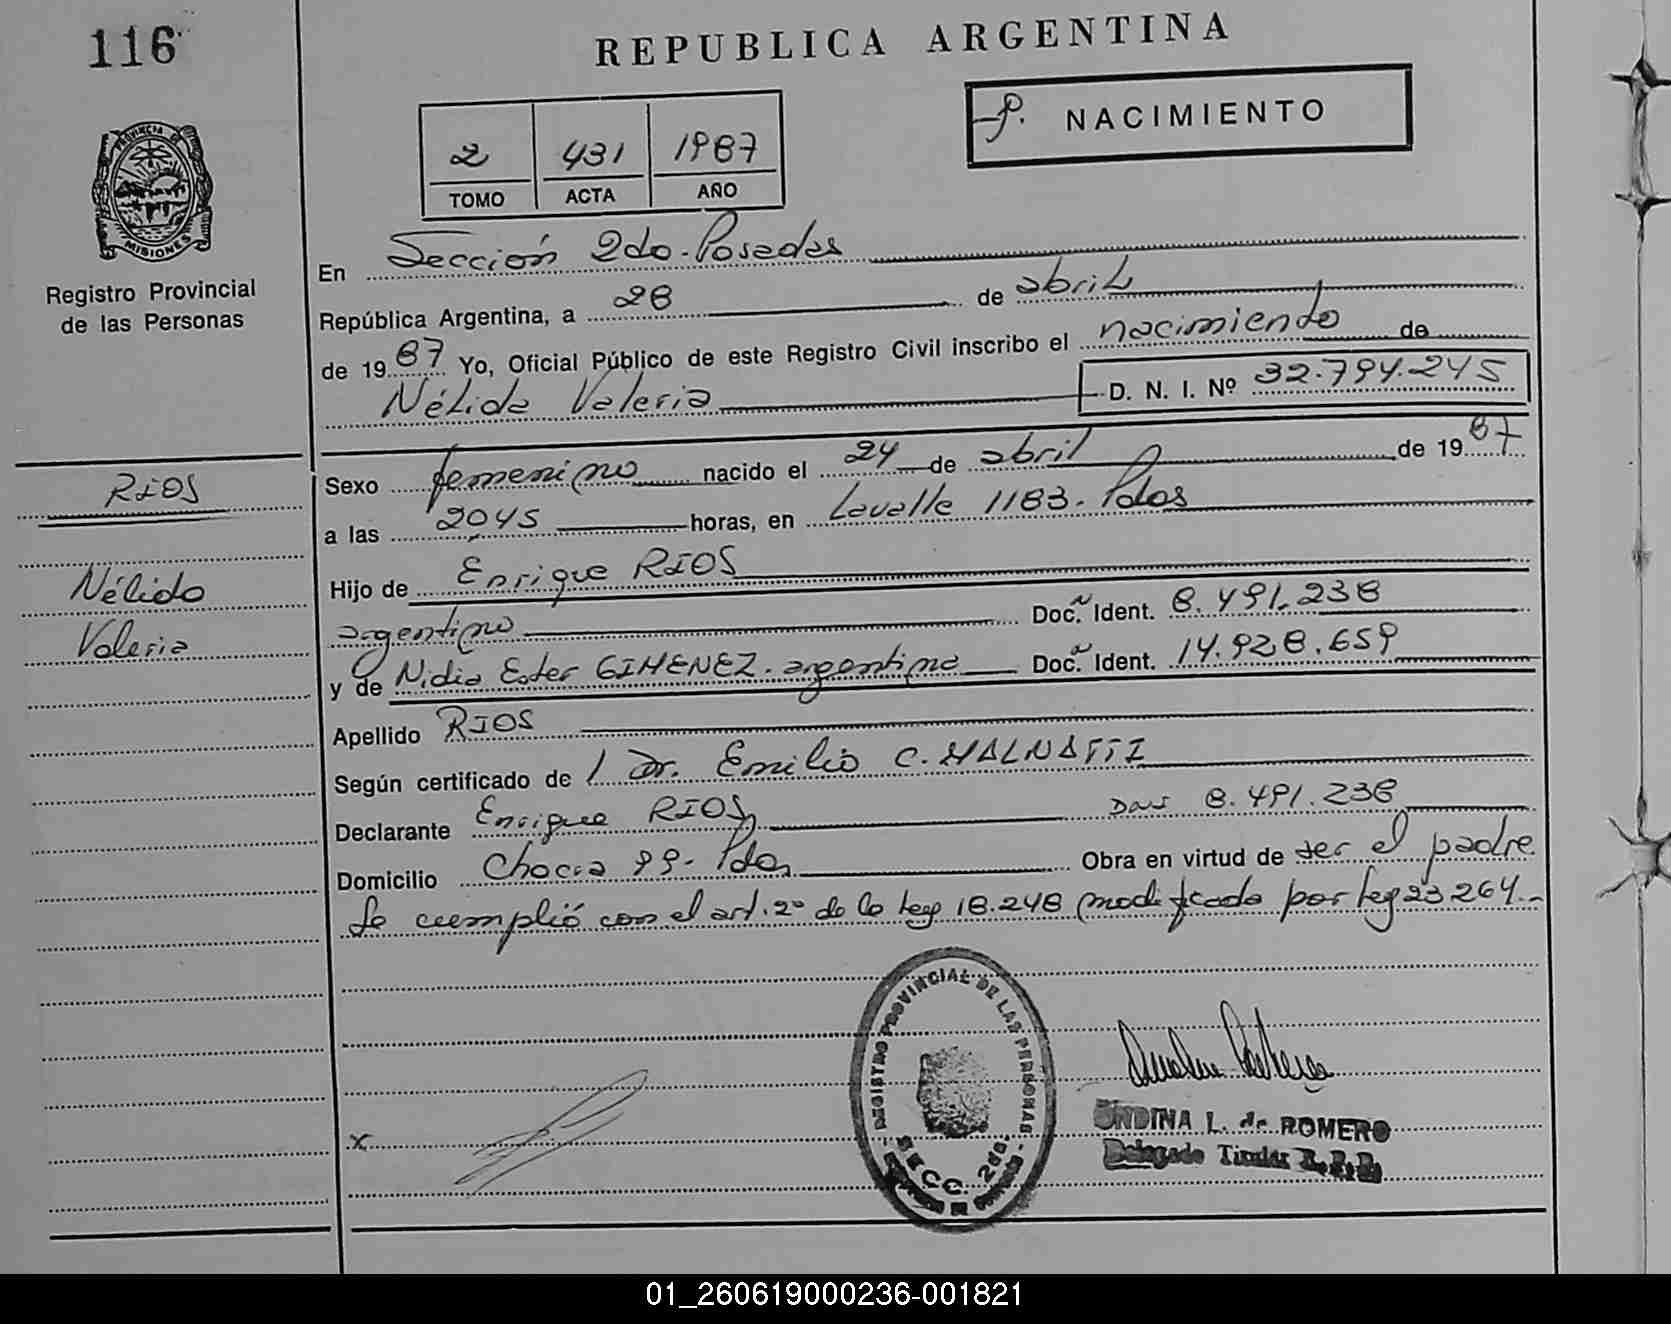 116
REPUBLICA ARGENTINA
NACIMIENTO
2 431 1987
TOMO ACTA AÑO
PROVINCIA DE MISIONES
Registro Provincial
de las Personas
En Sección 2da. Posadas
República Argentina, a 28 de abril
de 1987 Yo, Oficial Público de este Registro Civil inscribo el nacimiento de
Nélida Valeria D. N. I. Nº 32.794.245
RIOS
Nélida
Valeria
Sexo femenino nacido el 24 de abril de 1987
a las 2045 horas, en Lavalle 1183. Pdas
Hijo de Enrique RIOS
argentino Doc. Ident. 8.491.238
y de Nidia Ester GIMENEZ. argentina Doc. Ident. 14.928.659
Apellido RIOS
Según certificado de 1 Dr. Emilio C. MALNATTI
Declarante Enrique RIOS 8.491.238
Domicilio 99. Pdas Obra en virtud de ser el padre
Se cumplió con el art. 2º de la ley 18.248 modificada por ley 23264.-
REGISTRO PROVINCIAL DE LAS PERSONAS
SECC. 2da.
x
UNDINA L. de ROMERO
Delegada Titular
01_260619000236-001821